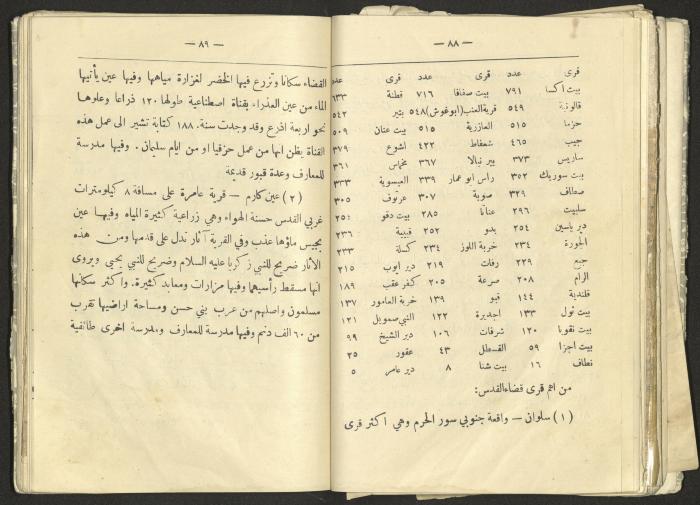 — ٨٨ —
قرى عدد قرى عدد قرى عدد
بيت اكسا ٧٩١ بيت صفافا ٧١٦ قطنة ٦٣٣
قالونية ٥٤٩ قرية العنب (ابوغوش) ٥٤٨ بتير ٥٤٢
حزما ٥١٥ العازرية ٥١٥ بيت عنان ٥٠٩
جيب ٤٦٥ شعفاط ٤٢٢ اشوع ٣٧٩
ساريس ٣٧٣ بير نبالا ٣٦٧ مخماس ٣٦١
بيت سوريك ٣٥٢ راس ابو عمار ٣٣٩ العيسوية ٣٣٣
صطاف ٣٢٩ صوبة ٣٠٧ عرتوف ٣٠٥
سلبيت ٢٩٦ عناتا ٢٨٥ بيت دقو
دير ياسين ٢٥٤ بدو ٢٥٢ قبيبة ٢٣٦
الجورة ٢٣٤ خربة اللوز ٢٣٤ كسلة ٢٣٣
جبع ٢٢٩ رفات ٢١٩ دير ايوب ٢١٥
الرام ٢٠٨ صرعة ٢٠٥ كفر عقب ١٨٩
قلندية ١٤٤ قبو ١٣٩ خربة العامور ١٣٧
بيت تول ١٣٣ اجديرة ١٢٢ النبي صمويل ١٢١
بيت نقوبا ١٢٠ شرفات ١٠٦ دير الشيخ ٩٩
بيت اجزا ٥٩ القسطل ٤٣ عقور ٢٥
نطاف ١٦ بيت شنا ٨ دير عامر ٥
من اهم قرى قضاء القدس:
(١) سلوان — واقعة جنوبي سور الحرم وهي اكثر قرى
— ٨٩ —
القضاء سكانا وتزرع فيها الخضر لغزارة مياهها وفيها عين يأتيها
الماء من عين العذراء بقناة اصطناعية طولها ١٢٠ ذراعا وعلوها
نحو اربعة اذرع وقد وجدت سنة. ١٨٨ كتابة تشير الى عمل هذه
القناة يظن انها من عمل حزقيا او من ايام سليمان. وفيها مدرسة
للمعارف وعدة قبور قديمة
(٢) عين كارم — قرية عامرة على مسافة ٨ كيلومترات
غربي القدس حسنة الهواء وهي زراعية كثيرة المياه وفيها عين
يجيس ماؤها عذب وفي القرية آثار تدل على قدمها ومن هذه
الاثار ضريح للنبي زكريا عليه السلام وضريح للنبي يحيى ويروى
انها مسقط رأسيهما وفيها مزارات ومعابد كثيرة. واكثر سكانها
مسلمون واصلهم من عرب بني حسن ومساحة اراضيها تقرب
من ٦٠ الف دنم وفيها مدرسة للمعارف ومدرسة اخرى طائفية